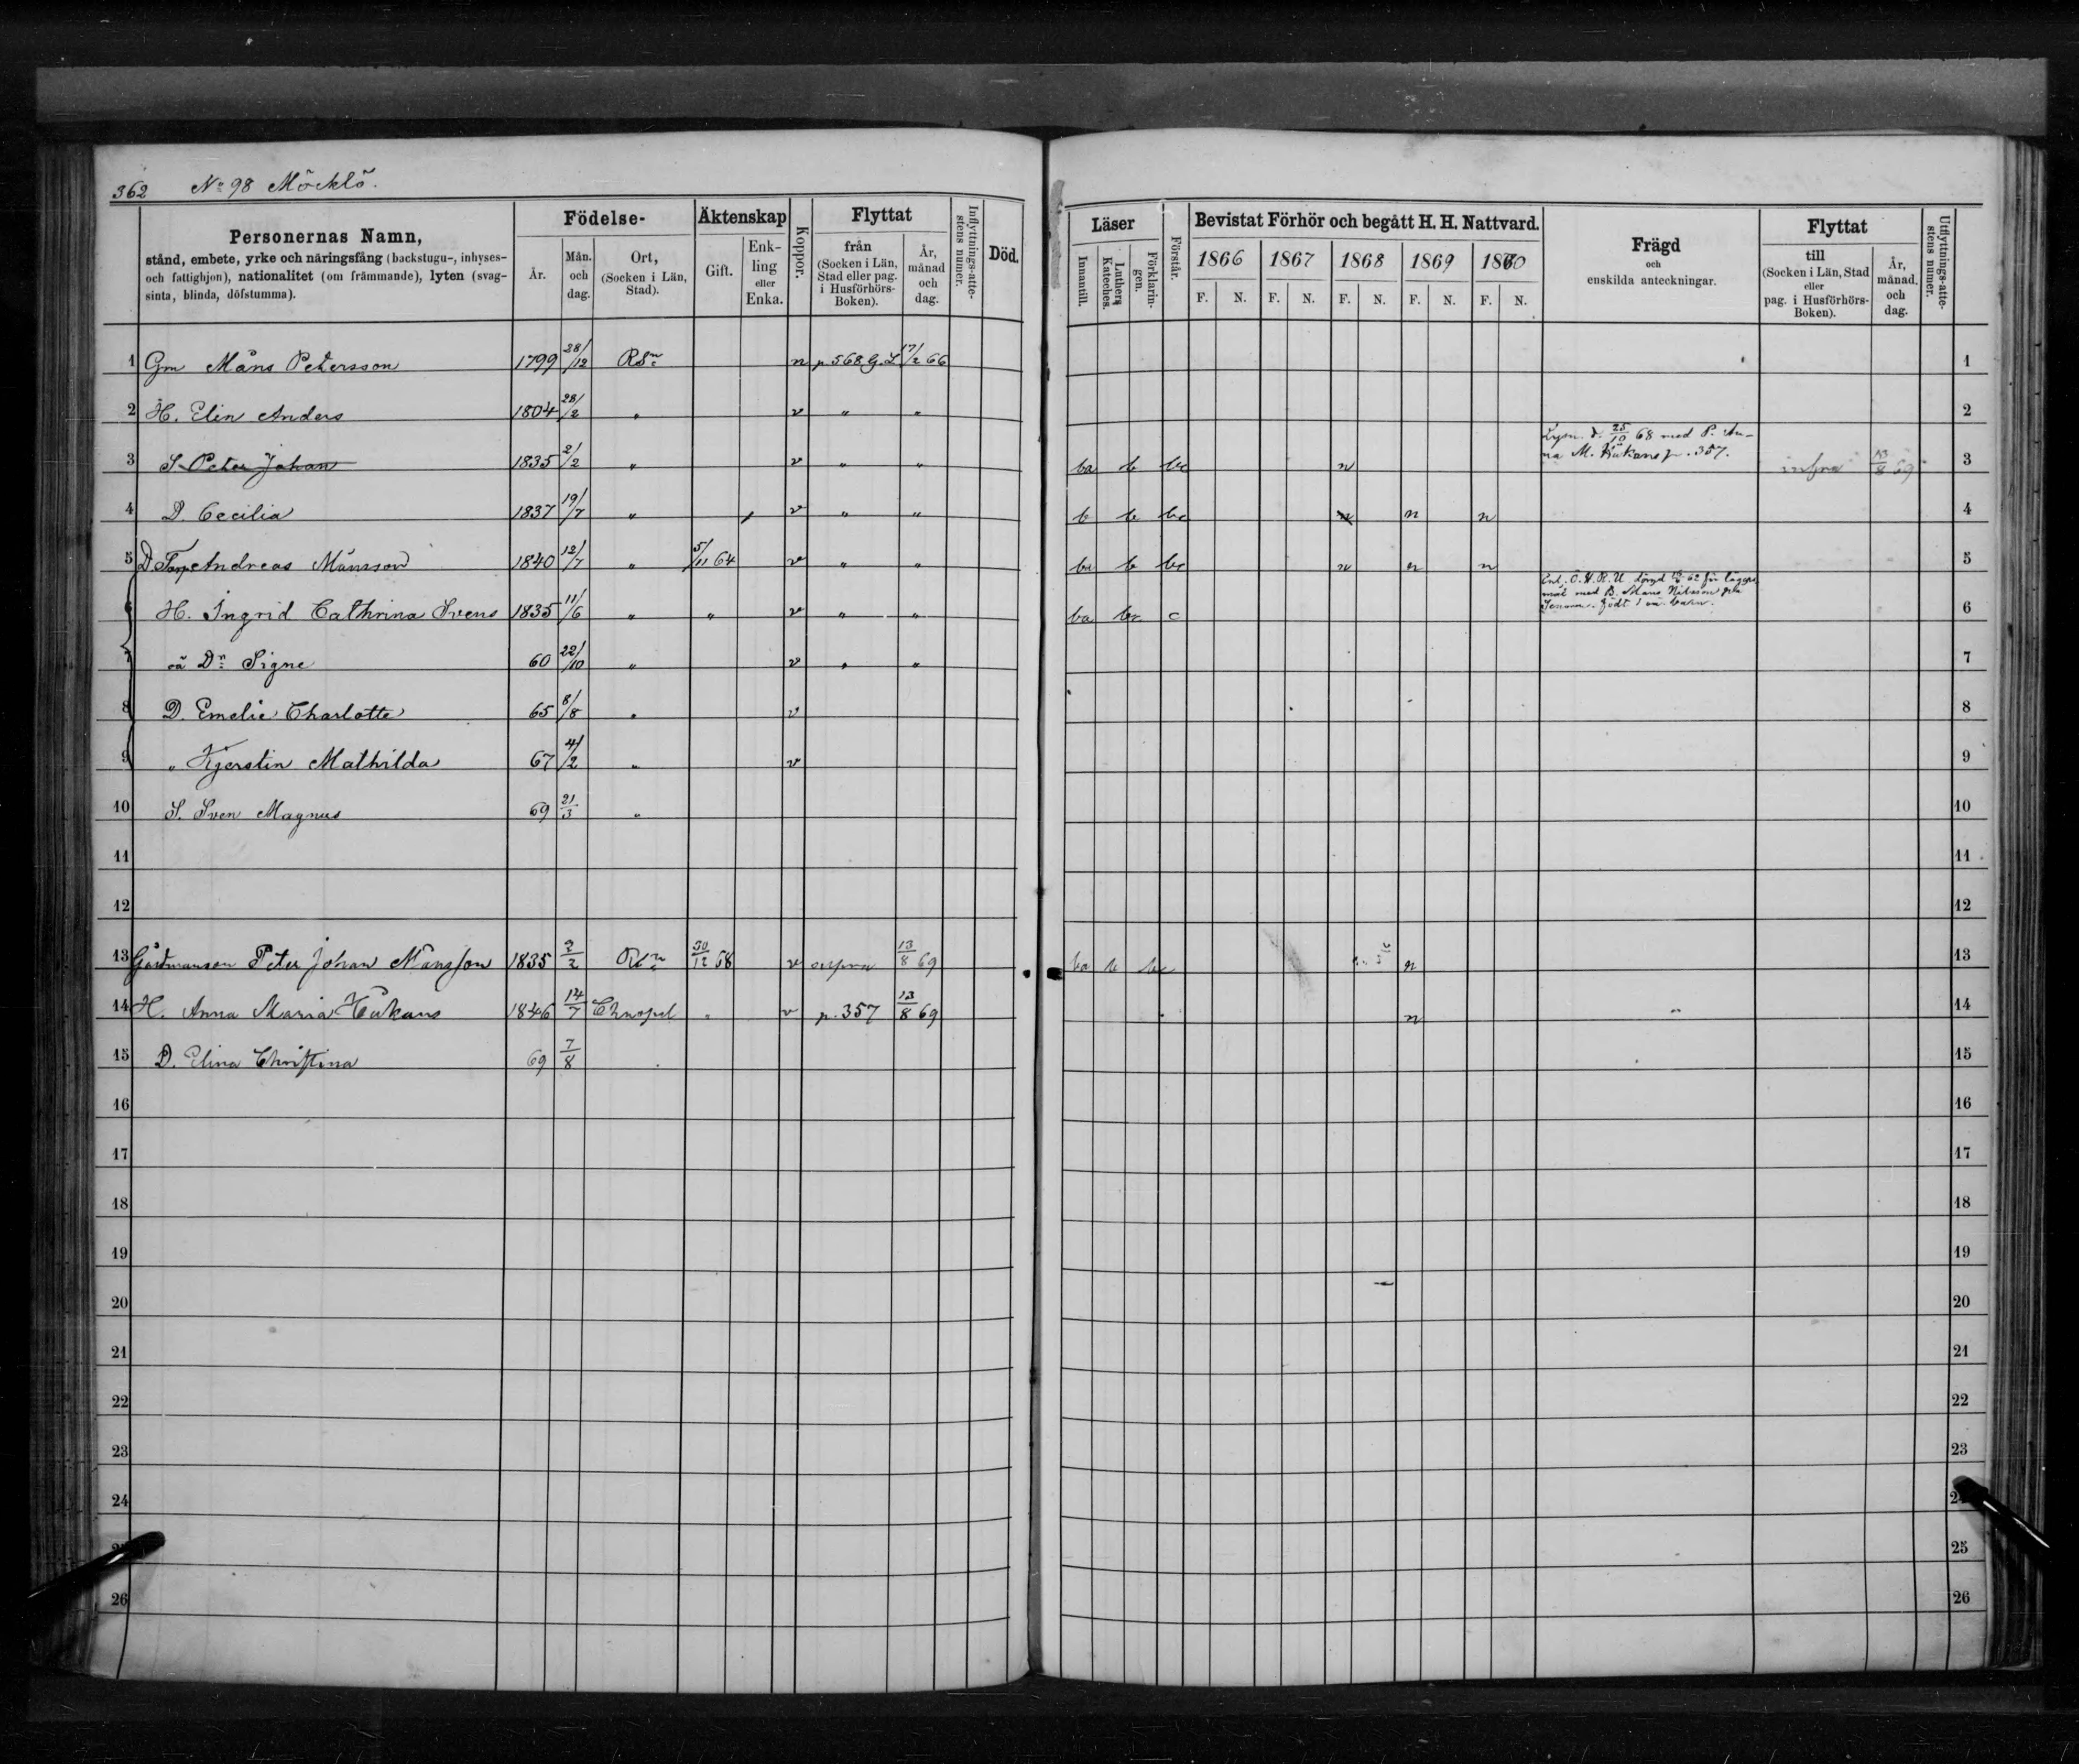 362 No 98 Möcklö.
Personernas Namn,
stånd, embete, yrke och näringsfång (backstugu-, inhyses-
och fattighjon), nationalitet (om främmande), lyten (svag-
sinta, blinda, döfstumma).
Födelse-
År. Mån. och dag. Ort, (Socken i Län, Stad).
Äktenskap
Gift. Enk-ling eller Enka.
Koppor.
Flyttat
från (Socken i Län, Stad eller pag. i Husförhörs-Boken). År, månad och dag.
Inflyttnings-atte-stens numer.
Död.
Läser
Innantill. Luthers Kateches. Förklarin-gen.
Förstår.
Bevistat Förhör och begått H. H. Nattvard.
1866 1867 1868 1869 1870
F. N. F. N. F. N. F. N. F. N.
Frägd
och
enskilda anteckningar.
Flyttat
till (Socken i Län, Stad eller pag. i Husförhörs-Boken). År, månad, och dag.
Utflyttnings-atte-stens numer.
1 Gm Måns Petersson 1799 28/12 RSn n p 568 G. L 17/2 66 1
2 H. Elin Anders 1804 28/2 " v " " 2
3 S Peter Johan 1835 2/2 " v " " ba b bc n Lysn. d. 25/10 68 med P. An-
na M. Håkans p. 357. infra 13/8 69 3
4 D. Cecilia 1837 19/7 " v " " b b bc n n n 4
5 D Torp Andreas Månsson 1840 12/7 " 5/11 64 v " " ba b bc n n n 5
6 H. Ingrid Cathrina Svens 1835 11/6 " " v " " ba bc c 6
7 oä Dn Signe 60 22/10 " v " " 7
8 D. Emelie Charlotte 65 8/8 " v 8
9 " Kjerstin Mathilda 67 4/2 " v 9
10 S. Sven Magnus 69 21/3 " 10
11 11
12 12
13 Gårdmanson Peter Johan Månsson 1835 2/2 RSn 30/12 68 v supra 13/8 69 ba b bc n 13
14 H. Anna Maria Håkans 1846 14/7 Chnopel " v p. 357 13/8 69 n " 14
15 D. Elina Christina 69 7/8 15
16 16
17 17
18 18
19 19
20 20
21 21
22 22
23 23
24
25
26 26